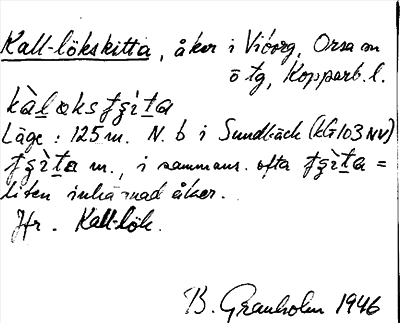 Kall-lökskitta, åker i Viborg, Orsa sn
ö tg, Kopparb. l.
Läge: 125 m. N. b i Sundbäck (kG 103 NV)
m., i sammans. ofta =
liten inhägnad åker.
Jfr. Kall-lök.
B. Granholm 1946